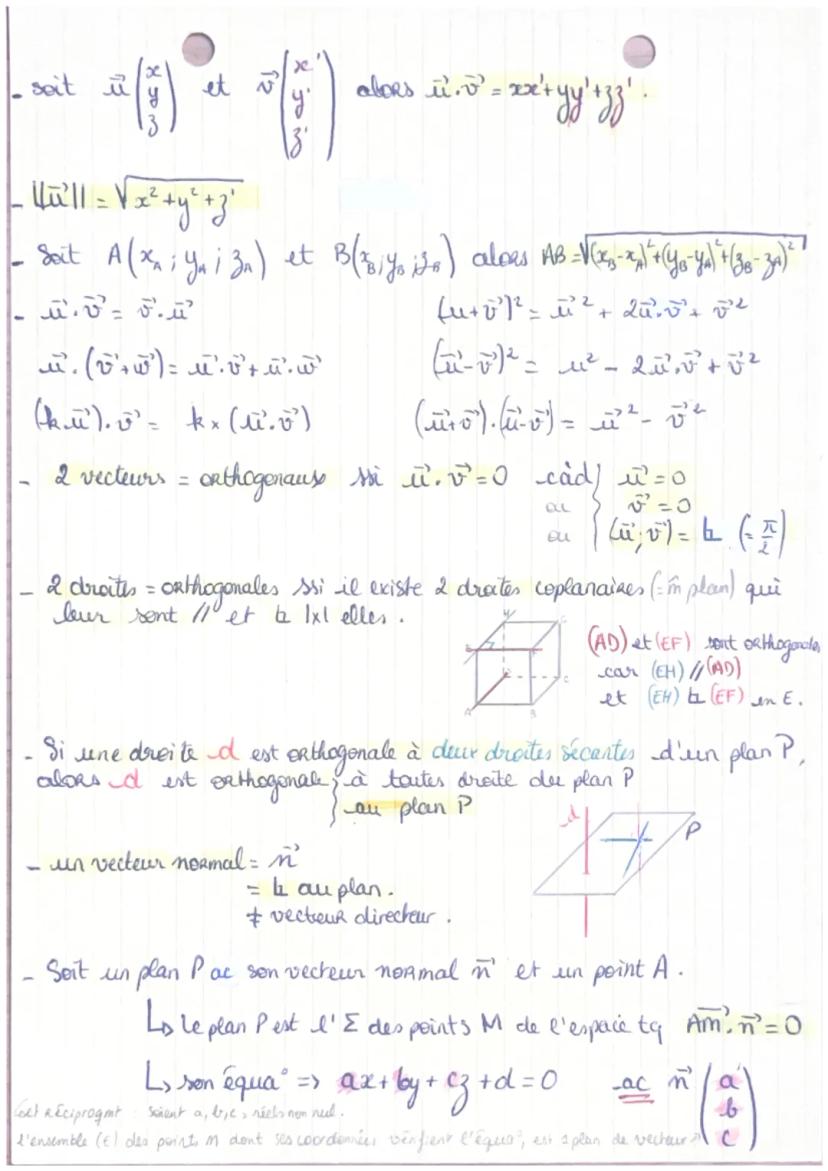 - soit u⃗ (x y z) et v⃗ (x' y' z') alors u⃗.v⃗ = xx'+yy'+zz'.
- ||u⃗|| = √x²+y²+z'
- Soit A(x_A ; y_A ; z_A) et B(x_B ; y_B ; z_B) alors AB = √(x_B-x_A)²+(y_B-y_A)²+(z_B-z_A)²
- u⃗.v⃗ = v⃗.u⃗ (u+v⃗)² = u⃗² + 2u⃗.v⃗ + v⃗²
u⃗.(v⃗+w⃗) = u⃗.v⃗ + u⃗.w⃗ (u⃗-v⃗)² = u² - 2u⃗.v⃗ + v⃗²
(k.u⃗).v⃗ = k × (u⃗.v⃗) (u⃗+v⃗).(u⃗-v⃗) = u⃗² - v⃗²
- 2 vecteurs = orthogonaux ssi u⃗.v⃗ = 0 càd { u⃗ = 0
ou v⃗ = 0
ou (u⃗ ; v⃗) = ⊾ (= π/2)
- 2 droites = orthogonales ssi il existe 2 droites coplanaires (= m̂ plan) qui
leur sont // et ⊾ |x| elles.
H G
E F
D C
A B
(AD) et (EF) sont orthogonales
car (EH) // (AD)
et (EH) ⊾ (EF) en E.
- Si une droite d est orthogonale à deux droites sécantes d'un plan P,
alors d est orthogonale } à toutes droite du plan P
au plan P
d
P
- un vecteur normal = n⃗
= ⊾ au plan.
≠ vecteur directeur.
- Soit un plan P ac son vecteur normal n⃗ et un point A.
↳ le plan P est l'Σ des points M de l'espace tq AM⃗.n⃗ = 0
↳ son équa° => ax + by + cz + d = 0 ac n⃗ (a b c)
Et réciproqmt : Soient a, b, c, réels non nul.
l'ensemble (E) des points M dont ses coordonnées vérifient l'équa°, est 1 plan de vecteur n⃗